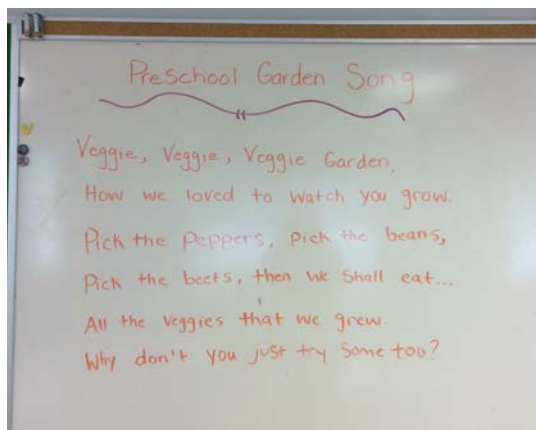 Preschool Garden Song
Veggie, Veggie, Veggie Garden,
How we loved to watch you grow.
Pick the peppers, pick the beans,
Pick the beets, then we shall eat...
All the veggies that we grew.
Why don't you just try some too?